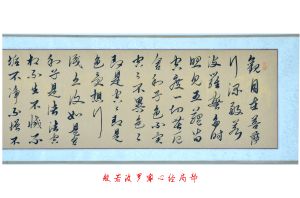 觀自在菩薩
行深般若
波羅蜜多時
照見五蘊皆
空度一切苦厄
舍利子色不異
空空不異色色
即是空空即是
色受想行
識亦復如是舍
利子是諸法空
相不生不滅不
垢不淨不增不
般若波罗蜜心经局部